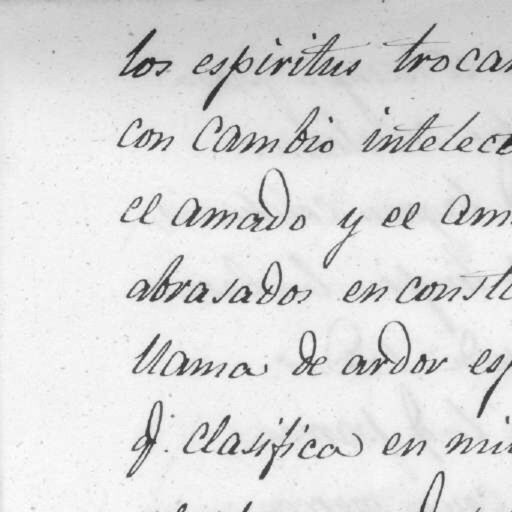 los espiritus trocan
con cambio intelect
el amado y el am
abrasados en const
llama de ardor esp
q. clasifica en mi